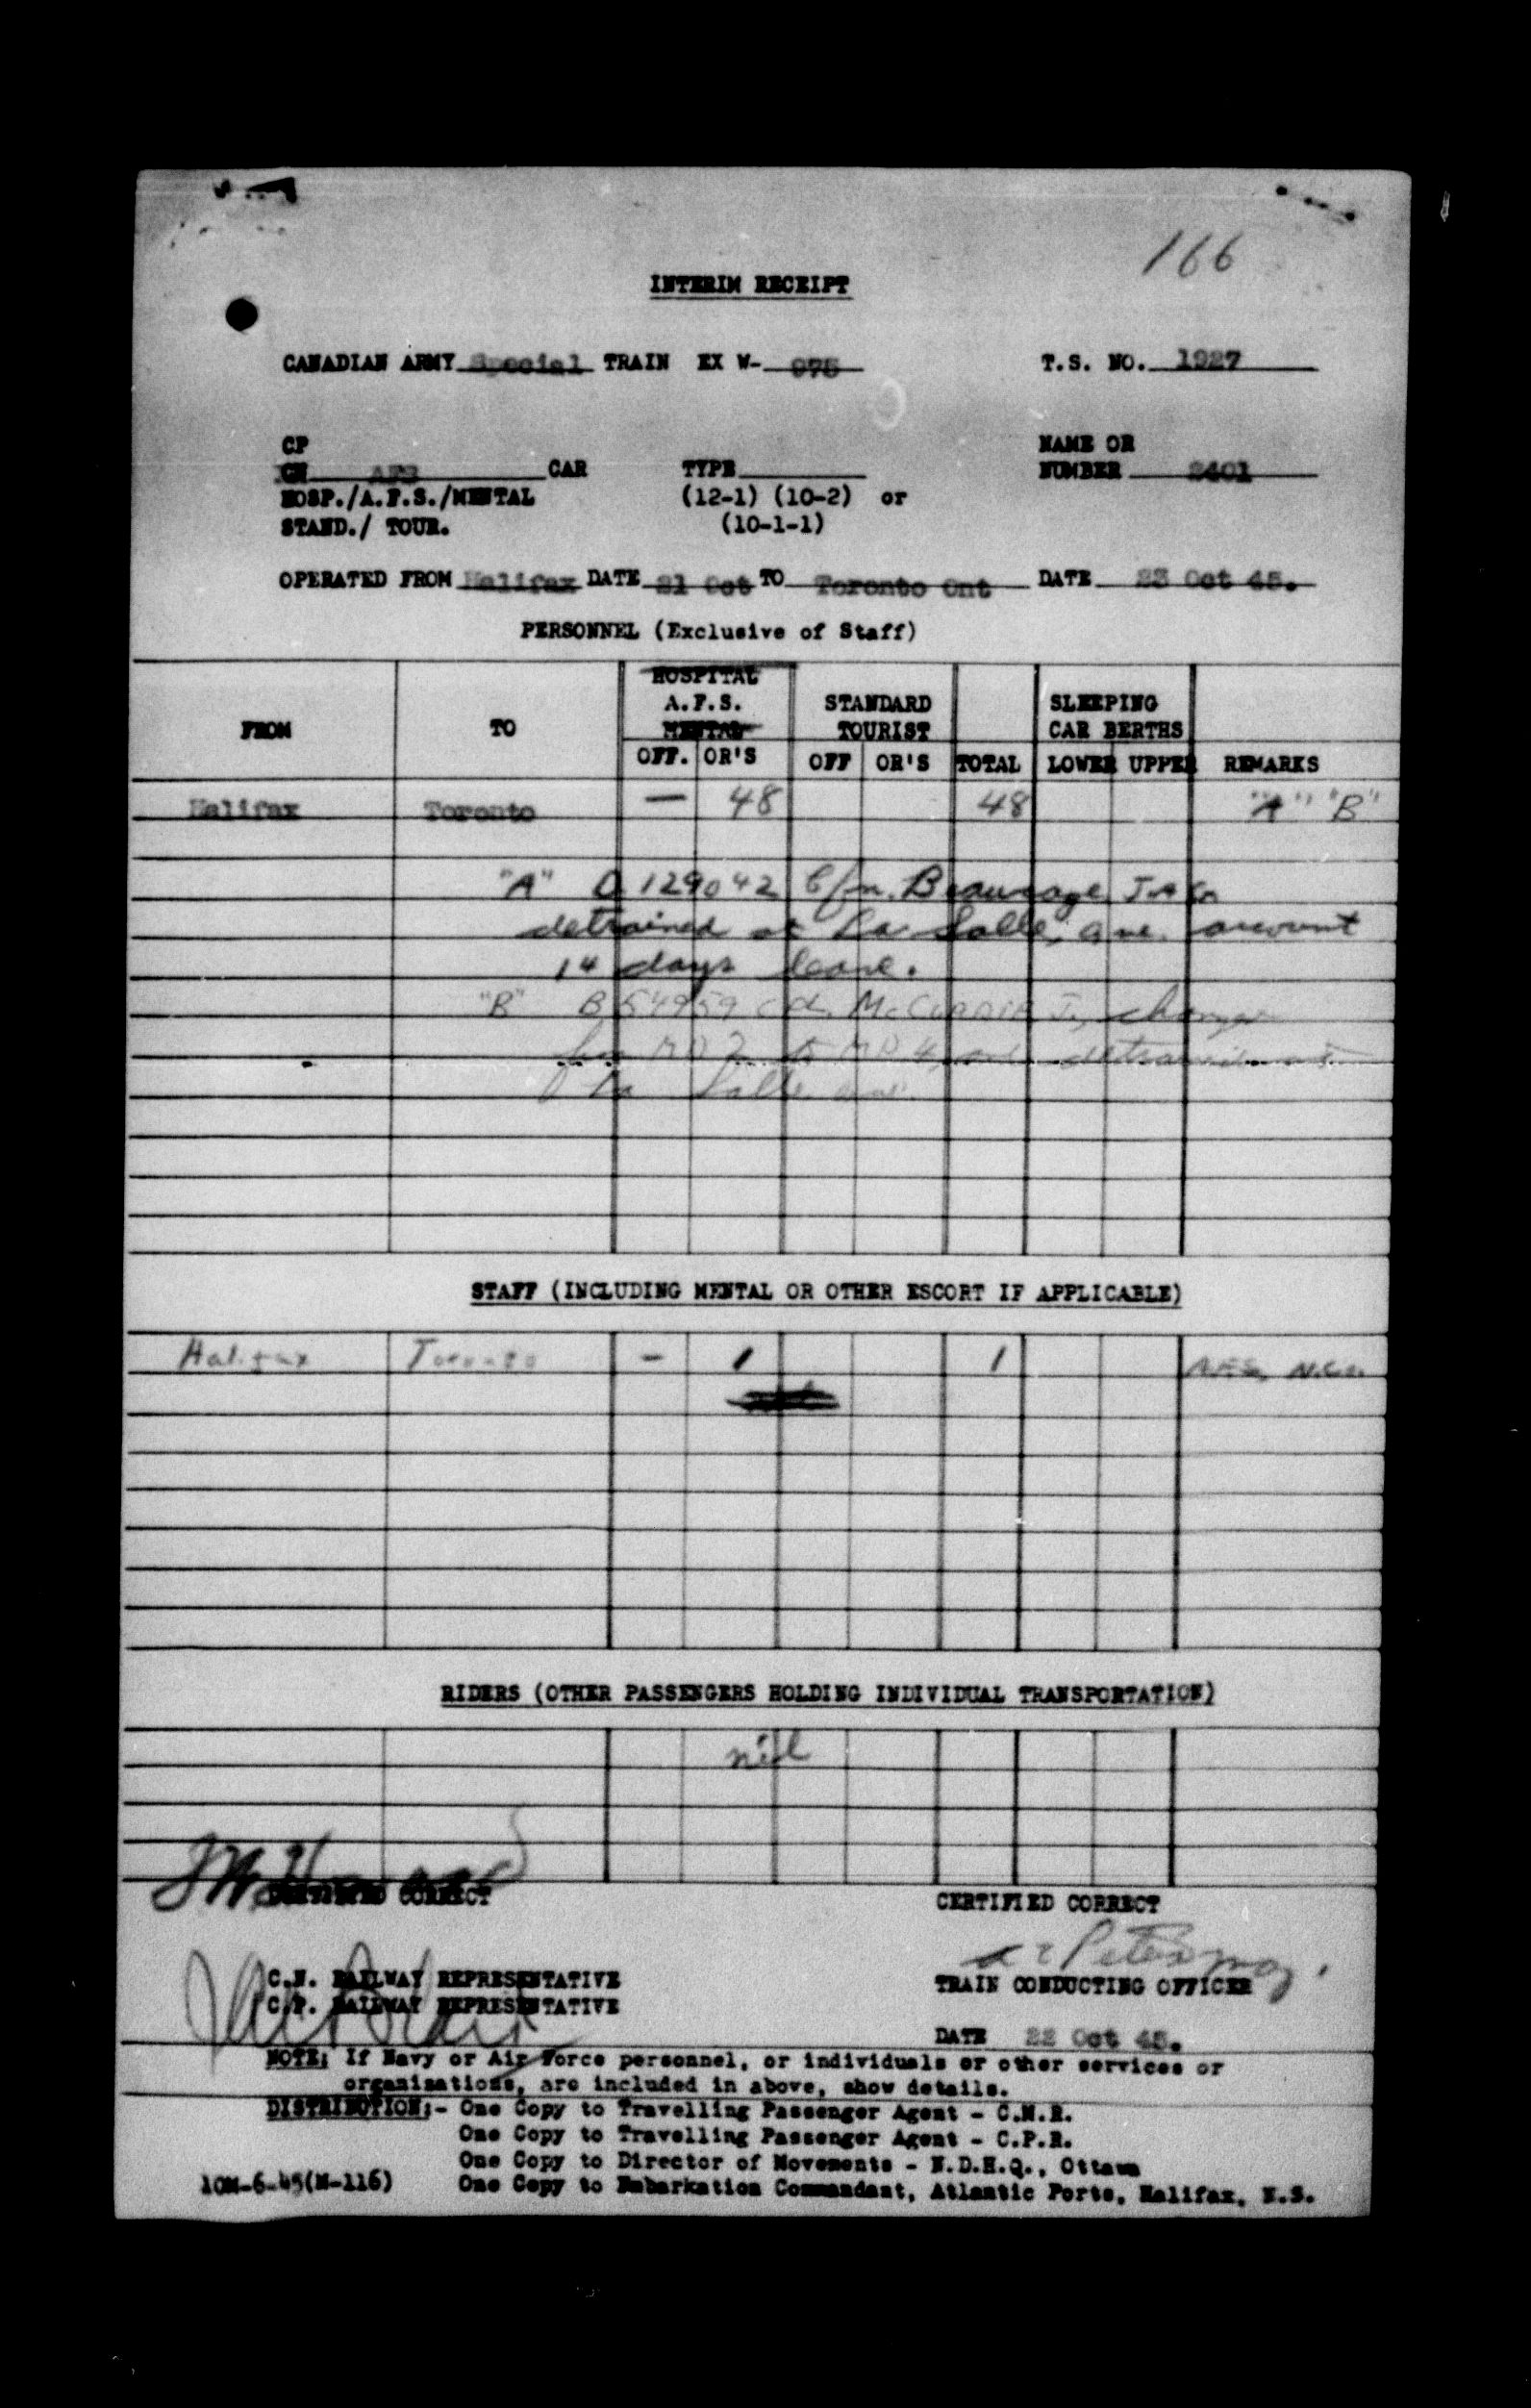 166
INTERIM RECEIPT
CANADIAN ARMY Special TRAIN EX W- 975 T.S. NO. 1927
CP NAME OR
CN AFS CAR TYPE NUMBER 2401
HOSP./A.F.S./MENTAL (12-1) (10-2) or
STAND./ TOUR. (10-1-1)
OPERATED FROM Halifax DATE 21 Oct TO Toronto Ont DATE 23 Oct 45.
PERSONNEL (Exclusive of Staff)
HOSPITAL
A.F.S. STANDARD SLEEPING
FROM TO MENTAL TOURIST CAR BERTHS
OFF. OR'S OFF OR'S TOTAL LOWER UPPER REMARKS
Halifax Toronto — 48 48 "A" "B"
"A" 129042 Cfn. Beausage J.A.
detrained at La Salle, Que. account
14 days leave.
"B" B 54959 McCurdie J., change
MD 2 to MD 4, and detrained at
La Salle Que.
STAFF (INCLUDING MENTAL OR OTHER ESCORT IF APPLICABLE)
Halifax Toronto - 1 1 A.F.S. N.C.O.
RIDERS (OTHER PASSENGERS HOLDING INDIVIDUAL TRANSPORTATION)
nil
CERTIFIED CORRECT CERTIFIED CORRECT
C.N. RAILWAY REPRESENTATIVE TRAIN CONDUCTING OFFICER
C.P. RAILWAY REPRESENTATIVE
DATE 22 Oct 45.
NOTE: If Navy or Air Force personnel, or individuals or other services or
organisations, are included in above, show details.
DISTRIBUTION:- One Copy to Travelling Passenger Agent - C.N.R.
One Copy to Travelling Passenger Agent - C.P.R.
One Copy to Director of Movements - N.D.H.Q., Ottawa
10M-6-45(M-116) One Copy to Embarkation Commandant, Atlantic Ports, Halifax, N.S.